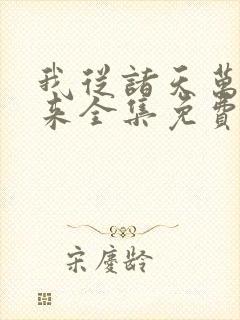 我從諸天萬
來全集免費
宋慶齡